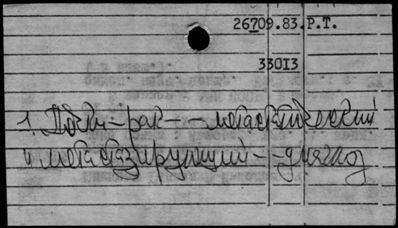 26709.83.Р.Т.
33013
1. Почки – рак – – метастатический
и метастазирующий – – диагноз